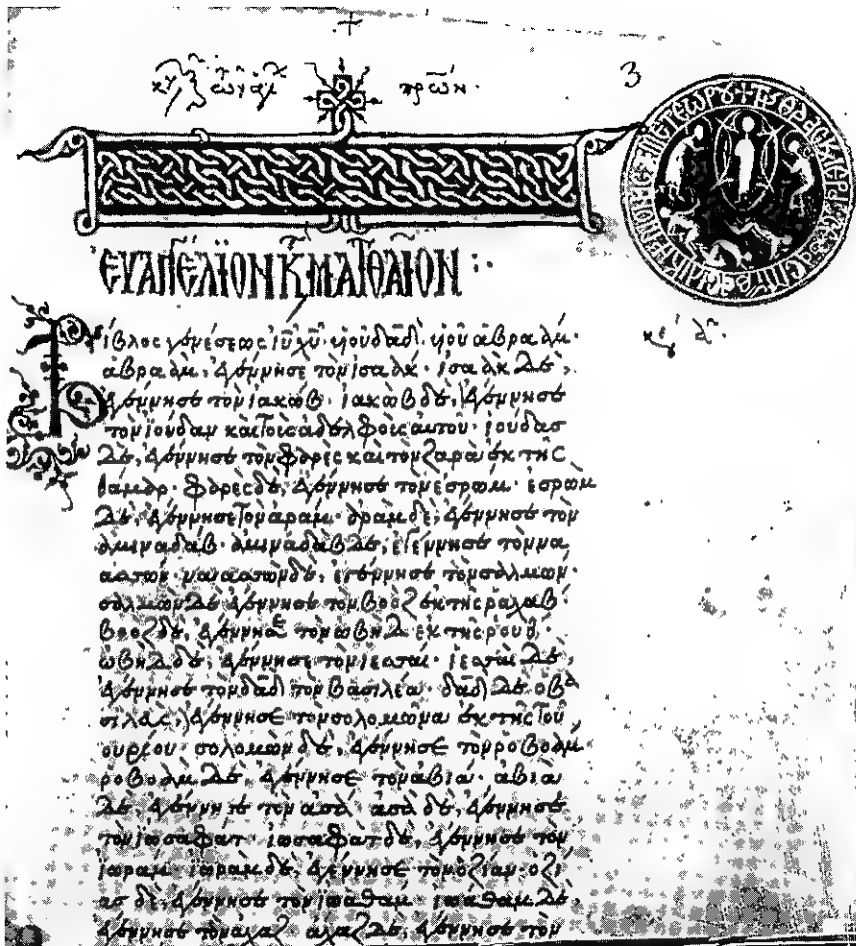 3
ΕΥΑΓΓΕΛΙΟΝ Κ ΜΑΤΘΑΙΟΝ :·
ίβλος γενέσεως ἰῦ χῦ· ὑιοῦ δᾱδ̄· ὑιοῦ ἀβραάμ·
ἀβραὰμ, ἐγέννησε τὸν ἰσαάκ· ἰσαὰκ δὲ,
ἐγέννησε τὸν ἰακώβ· ἰακὼβ δὲ, ἐγέννησε
τὸν ἰούδαν καὶ τοὺς ἀδελφοὺς αὐτοῦ· ἰούδας
δὲ, ἐγέννησε τὸν φαρὲς καὶ τὸν ζαρὰ ἐκ τῆς
θάμαρ· φαρὲς δὲ, ἐγέννησε τὸν ἐσρώμ· ἐσρὼμ
δὲ, ἐγέννησε τὸν ἀράμ· ἀρὰμ δὲ, ἐγέννησε τὸν
ἀμιναδάβ· ἀμιναδὰβ δὲ, ἐγέννησε τὸν να
ασσών· ναασσὼν δὲ, ἐγέννησε τὸν σαλμών·
σαλμὼν δὲ ἐγέννησε τὸν βοὸζ ἐκ τῆς ραχάβ·
βοὸζ δὲ, ἐγέννησε τὸν ὠβὴδ ἐκ τῆς ρούθ·
ὠβὴδ δὲ, ἐγέννησε τὸν ἰεσσαί· ἰεσσαὶ δὲ,
ἐγέννησε τὸν δᾱδ̄ τὸν βασιλέα· δᾱδ̄ δὲ ὁ βα
σιλεὺς, ἐγέννησε τὸν σολομῶνα ἐκ τῆς τοῦ
ουρίου· σολομὼν δὲ, ἐγέννησε τὸν ροβοάμ·
ροβοὰμ δὲ, ἐγέννησε τὸν ἀβιά· αβιὰ
δὲ, ἐγέννησε τὸν ἀσά· ἀσὰ δὲ, ἐγέννησε
τὸν ἰωσαφάτ· ἰωσαφὰτ δὲ, ἐγέννησε τὸν
ἰωράμ· ἰωρὰμ δὲ, ἐγέννησε τὸν ὀζίαν· ὀζί
ας δὲ, ἐγέννησε τὸν ἰωάθαμ· ἰωάθαμ δὲ,
ἐγέννησε τὸν ἄχαζ· ἄχαζ δὲ, ἐγέννησε τὸν